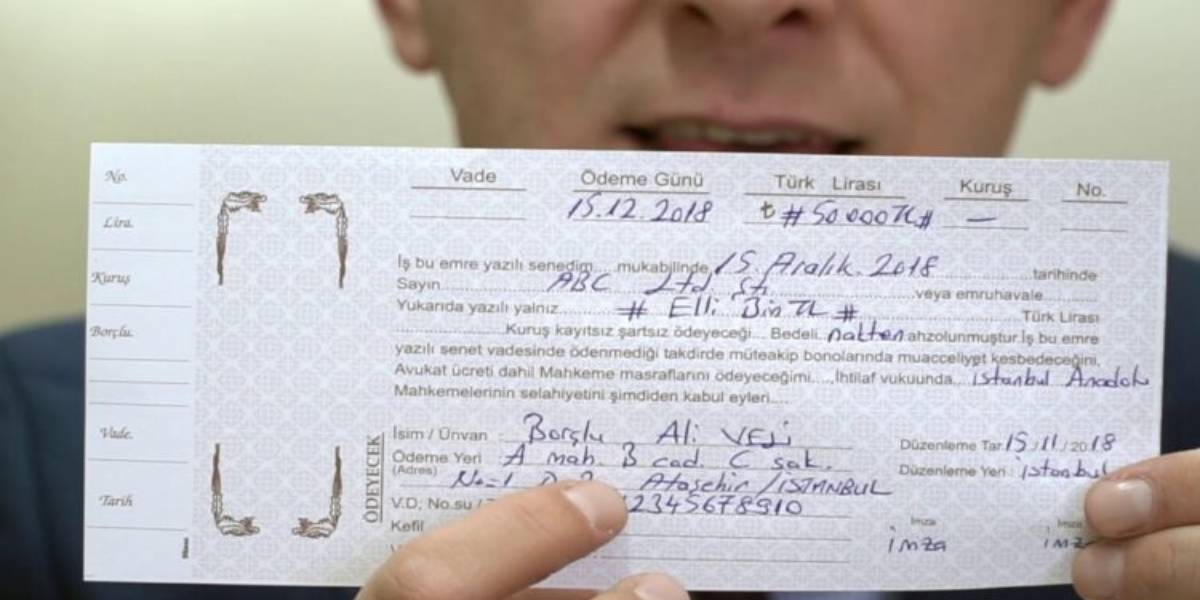 No.
Lira.
Kuruş
Borçlu.
Vade.
Tarih
Vade Ödeme Günü Türk Lirası Kuruş No.
15.12.2018 ₺ # 50000TL# —
İş bu emre yazılı senedim.... mukabilinde 15. Aralık. 2018 tarihinde
Sayın ABC Ltd. Şti. veya emruhavale
Yukarıda yazılı yalnız # Elli Bin TL # Türk Lirası
Kuruş kayıtsız şartsız ödeyeceği... Bedeli nakten ahzolunmuştur.İş bu emre
yazılı senet vadesinde ödenmediği takdirde müteakip bonolarında muacceliyet kesbedeceğini,
Avukat ücreti dahil Mahkeme masraflarını ödeyeceğimi..... İhtilaf vukuunda.. istanbul Anadolu
Mahkemelerinin selahiyetini şimdiden kabul eyleri....
ÖDEYECEK
İsim / Ünvan : Borçlu Ali VELİ
Ödeme Yeri : A mah. B cad. C sok.
(Adres) No:1 Ataşehir / İSTANBUL
V.D. No.su / 12345678910
Kefil
Düzenleme Tar 15/11/2018
Düzenleme Yeri : istanbul
İmza İmza
imza imza